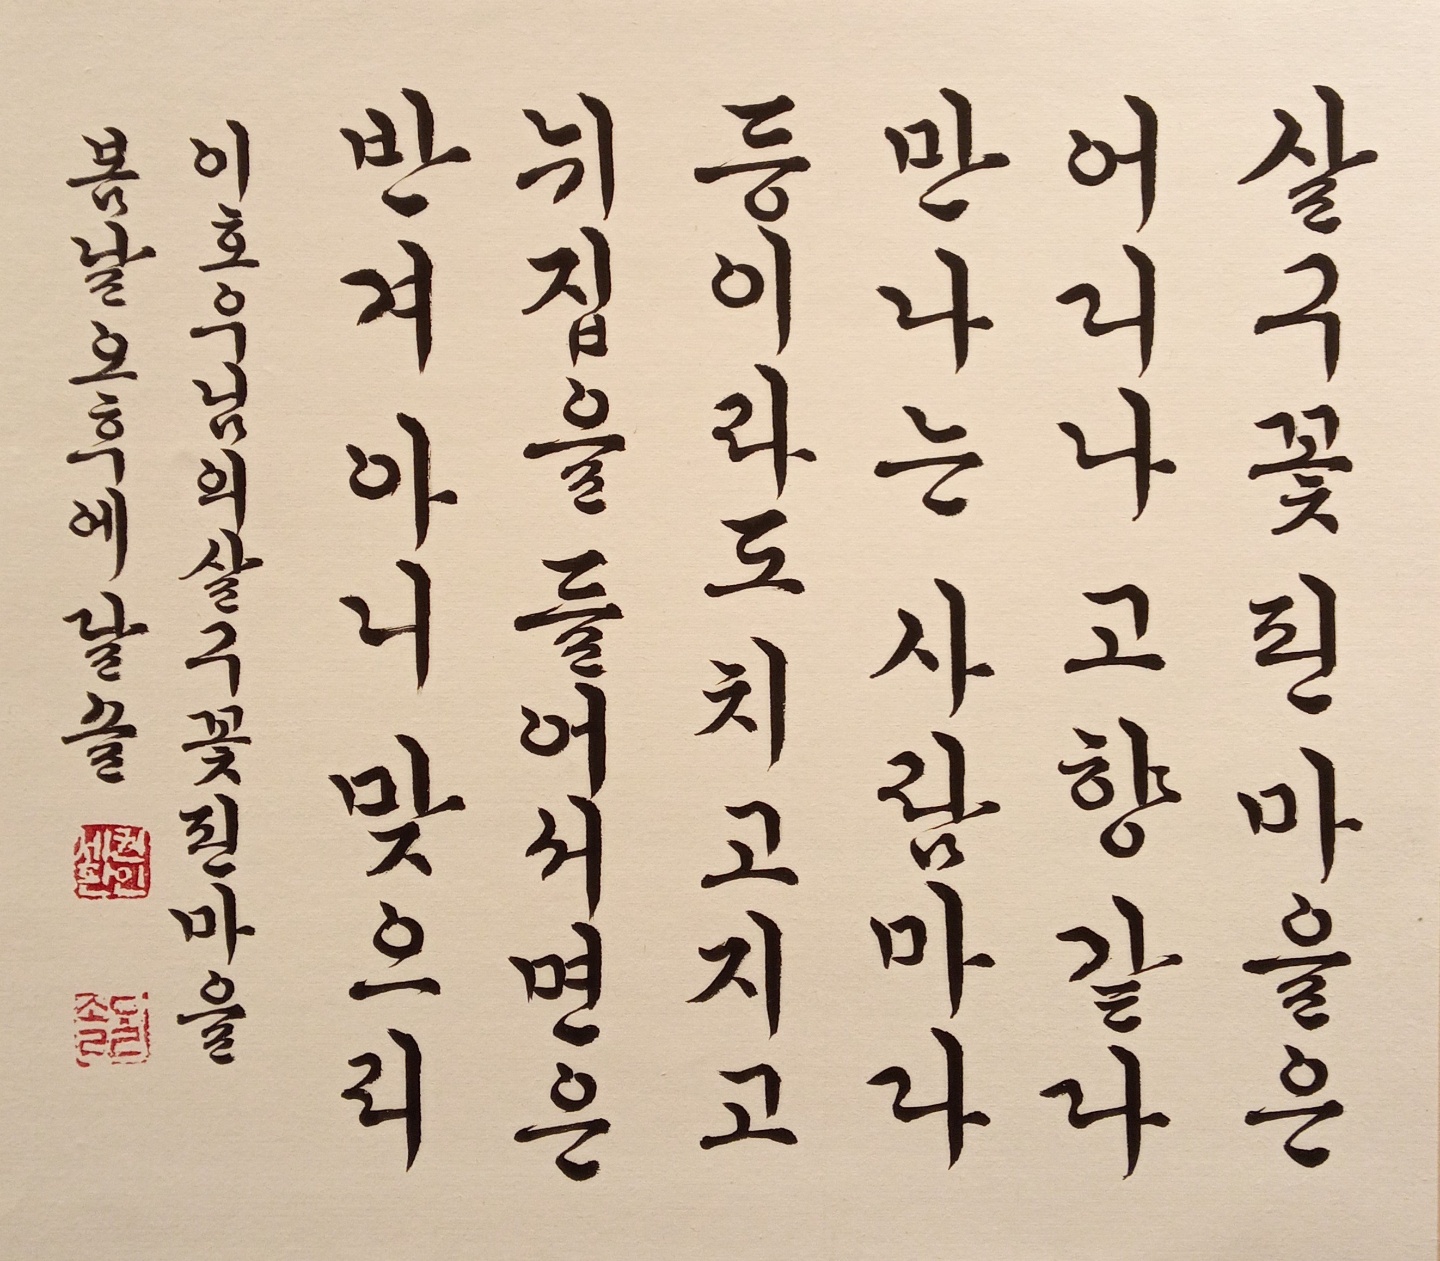 살구꽃 핀 마을은
어디나 고향 같다
만나는 사람마다
등이라도 치고지고
뉘집을 들어서면은
반겨 아니 맞으리
이호우님의살구꽃핀마을
봄날오후에